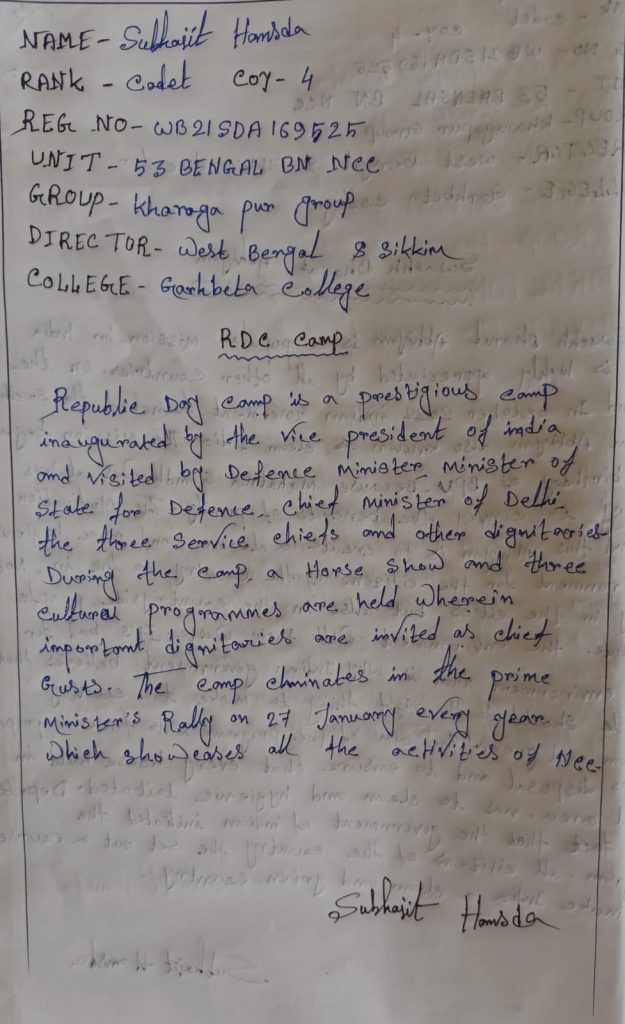 NAME - Subhajit Hansda
RANK - Cadet COY - 4
REG NO - WB21SDA169525
UNIT - 53 BENGAL BN NCC
GROUP - Kharaga pur group
DIRECTOR - West Bengal & Sikkim
COLLEGE - Garhbeta College
RDC Camp
Republic Day camp is a prestigious camp
inaugurated by the vice president of india
and visited by Defence Minister, Minister of
State for Defence, Chief Minister of Delhi,
the three Service chiefs and other dignitaries.
During the camp, a Horse Show and three
cultural programmes are held wherein
important dignitaries are invited as chief
Gusts. The camp clminates in the prime
Minister's Rally on 27 January every year.
which showcases all the activities of Ncc.
Subhajit Hansda